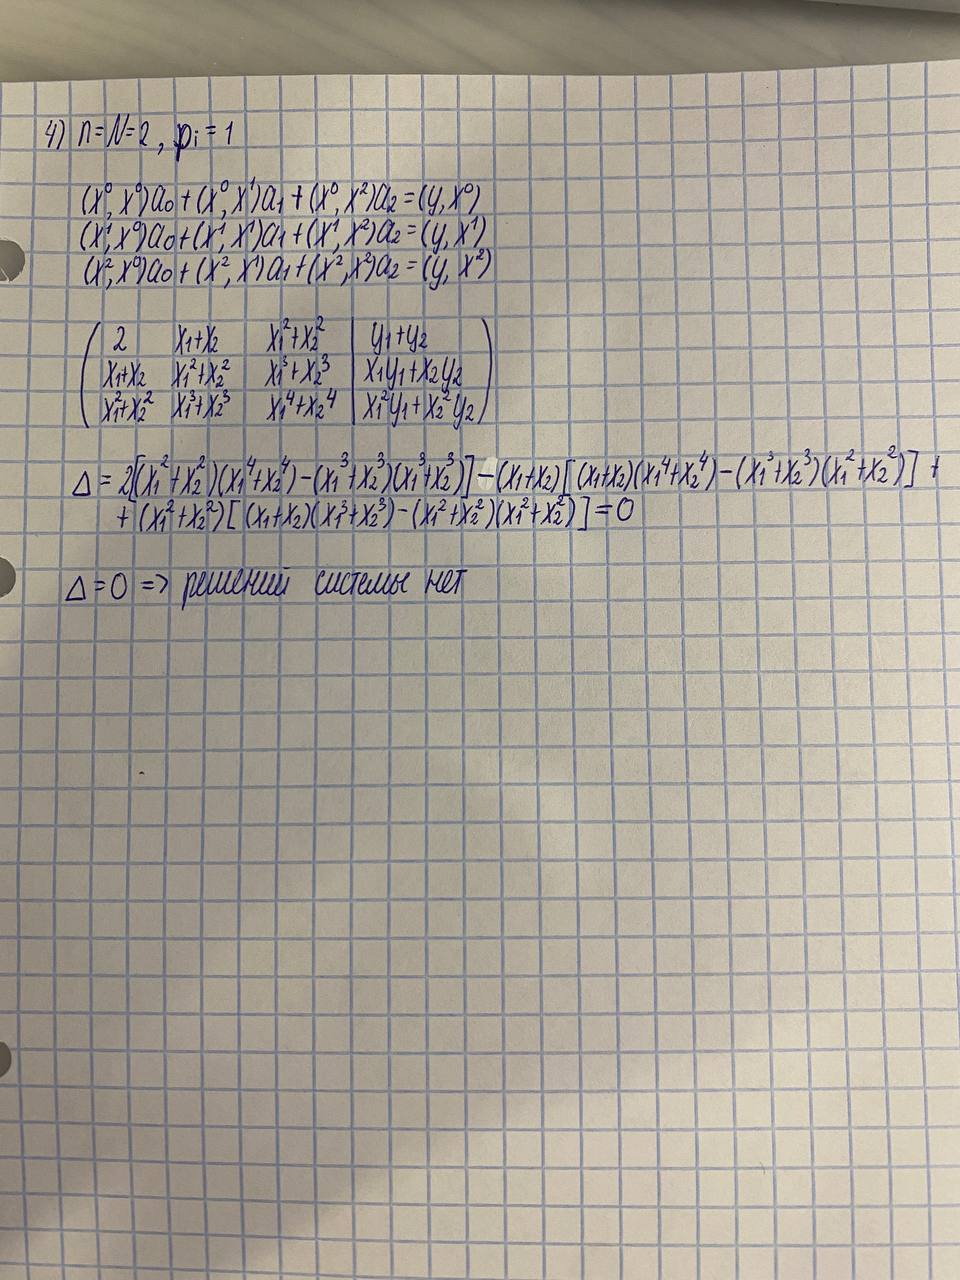 4) n=N=2, pi=1
(x⁰, x⁰)a₀+(x⁰, x¹)a₁+(x⁰, x²)a₂=(y, x⁰)
(x¹, x⁰)a₀+(x¹, x¹)a₁+(x¹, x²)a₂=(y, x¹)
(x², x⁰)a₀+(x², x¹)a₁+(x², x²)a₂=(y, x²)
2 x₁+x₂ x₁²+x₂² | y₁+y₂
x₁+x₂ x₁²+x₂² x₁³+x₂³ | x₁y₁+x₂y₂
x₁²+x₂² x₁³+x₂³ x₁⁴+x₂⁴ | x₁²y₁+x₂²y₂
Δ=2[(x₁²+x₂²)(x₁⁴+x₂⁴)-(x₁³+x₂³)(x₁³+x₂³)]-(x₁+x₂)[(x₁+x₂)(x₁⁴+x₂⁴)-(x₁³+x₂³)(x₁²+x₂²)]+
+(x₁²+x₂²)[(x₁+x₂)(x₁³+x₂³)-(x₁²+x₂²)(x₁²+x₂²)]=0
Δ=0 => решений системы нет